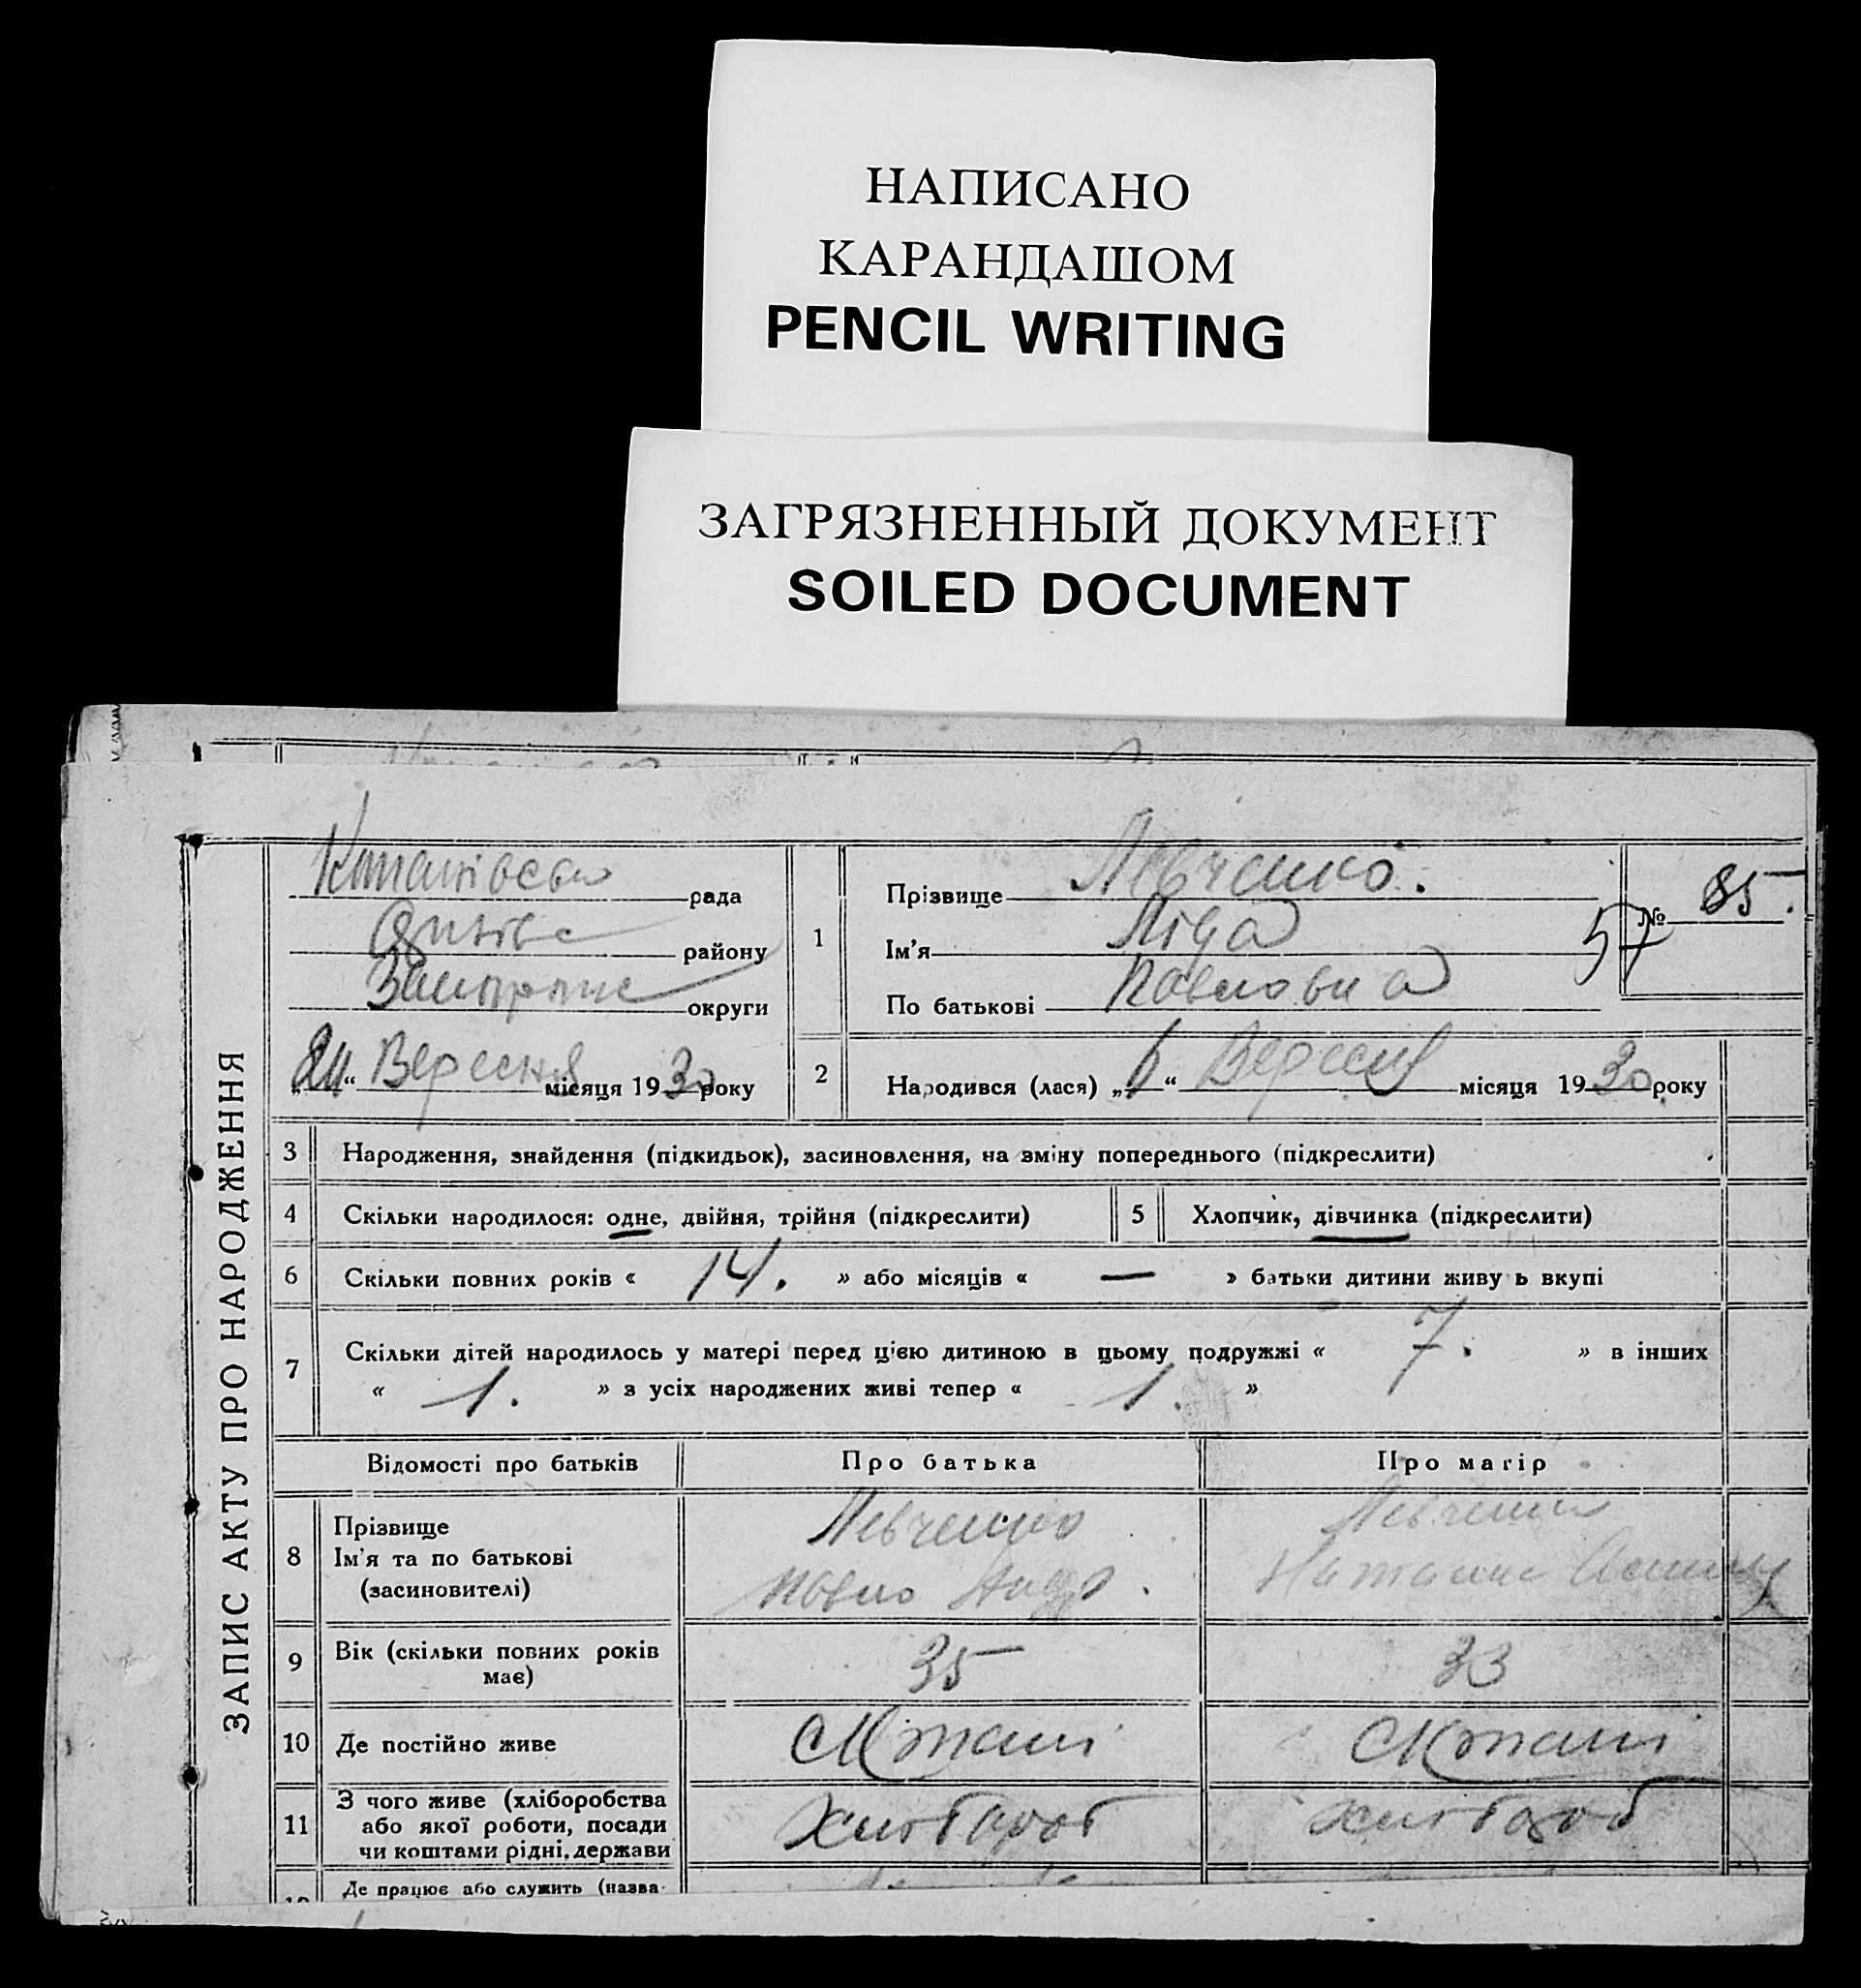 НАПИСАНО
КАРАНДАШОМ
PENCIL WRITING
ЗАГРЯЗНЕННЫЙ ДОКУМЕНТ
SOILED DOCUMENT
ЗАПИС АКТУ ПРО НАРОДЖЕННЯ
рада
району
округи
Вересня місяця 1930 року
1
Прізвище Левченко.
Ім'я Ліда
По батькові Павловна
№ 85.
57
2
Народився (лася) „6“ Вересня місяця 1930 року
3 Народження, знайдення (підкидьок), засиновлення, на зміну попереднього (підкреслити)
4 Скільки народилося: одне, двійня, трійня (підкреслити)
5 Хлопчик, дівчинка (підкреслити)
6 Скільки повних років « 14. » або місяців « — » батьки дитини живуть вкупі
7 Скільки дітей народилось у матері перед цією дитиною в цьому подружжі « 7. » в інших
« 1. » з усіх народжених живі тепер « 1. »
Відомості про батьків Про батька Про матір
8 Прізвище
Ім'я та по батькові
(засиновителі)
Левченко
Павло
Левченко
9 Вік (скільки повних років
має)
35
33
10 Де постійно живе
11 З чого живе (хліборобства
або якої роботи, посади
чи коштами рідні, держави
Хлібороб
хлібороб
Де працює або служить (назва